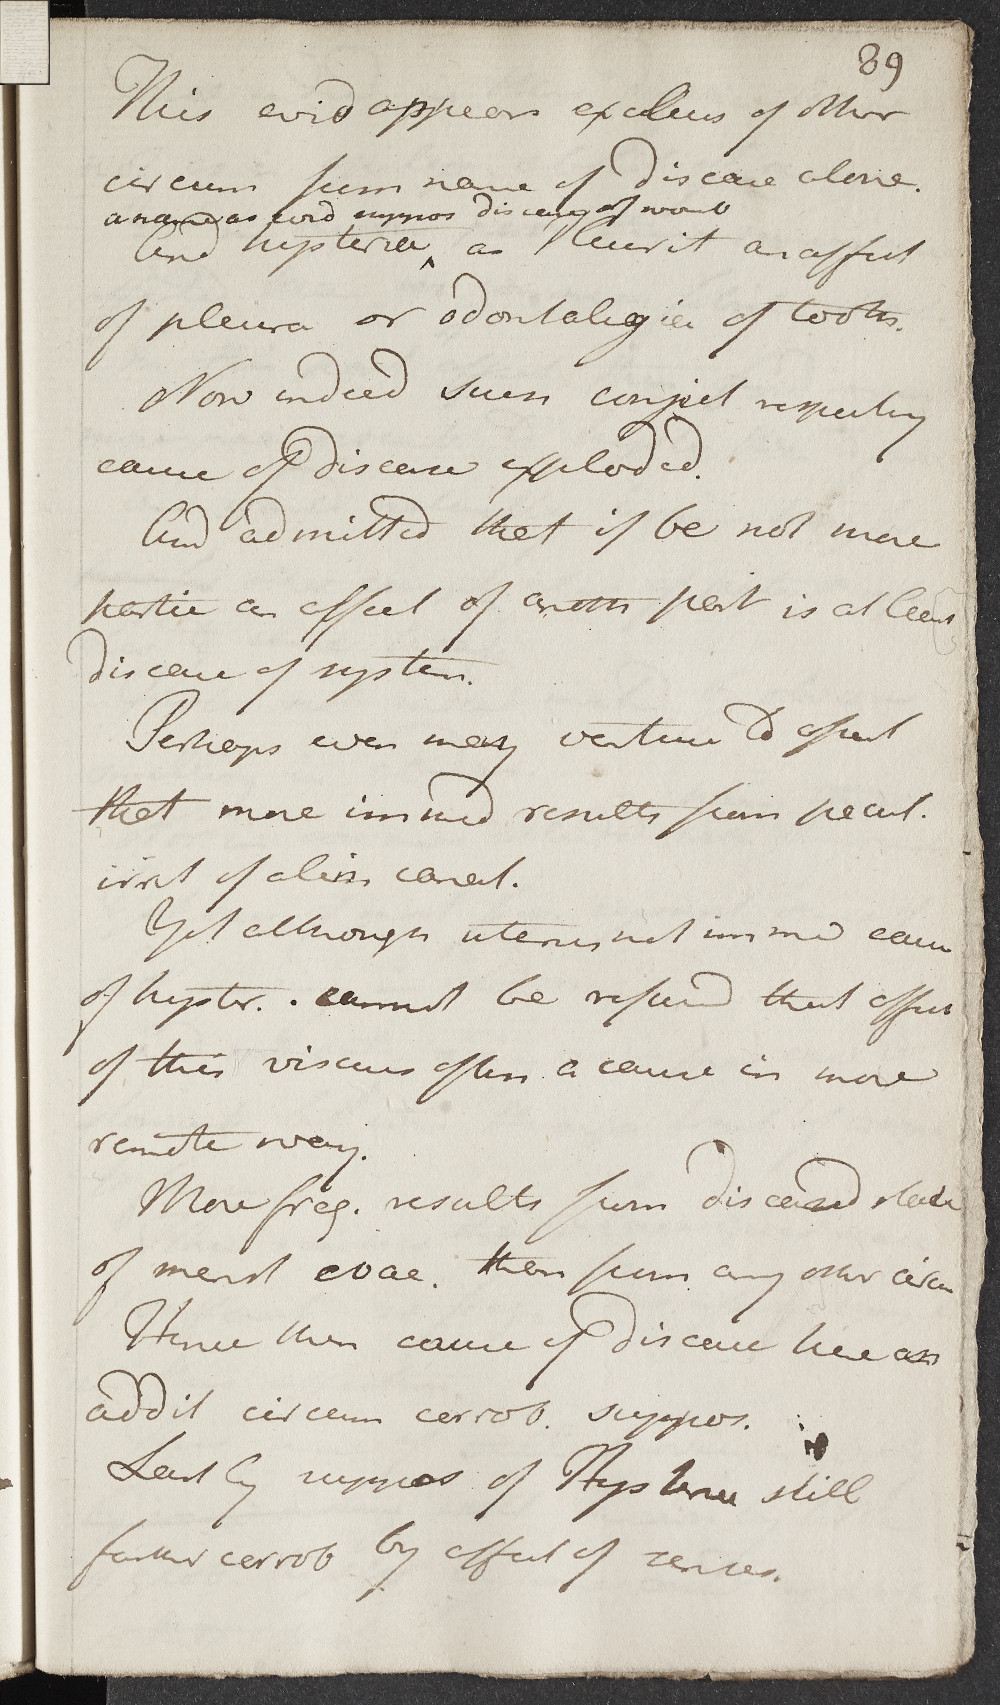 89
This evid appears exclus of other
circum from name of disease alone.
a name as evid suppos disease of womb
And hysteria ^ as Pleurit an affect
of pleura or odontalegia of tooth.
Now indeed such conject respecting
cause of disease exploded.
And admitted that if be not more
partic an affect of anoth part is at least
disease of system.
Perhaps even may venture to assert
that more immed results from pecul.
irrit of alim canal.
Yet although uterus not immed caus
of hyster. cannot be refused that affect
of this viscus often a cause in more
remote way.
More freq. results from diseased state
of menst evac. than from any other circu
Hence then cause of disease here an
addit circum corrob. suppos.
Lastly suppos of Hysteria still
farther corrob by effect of remes.